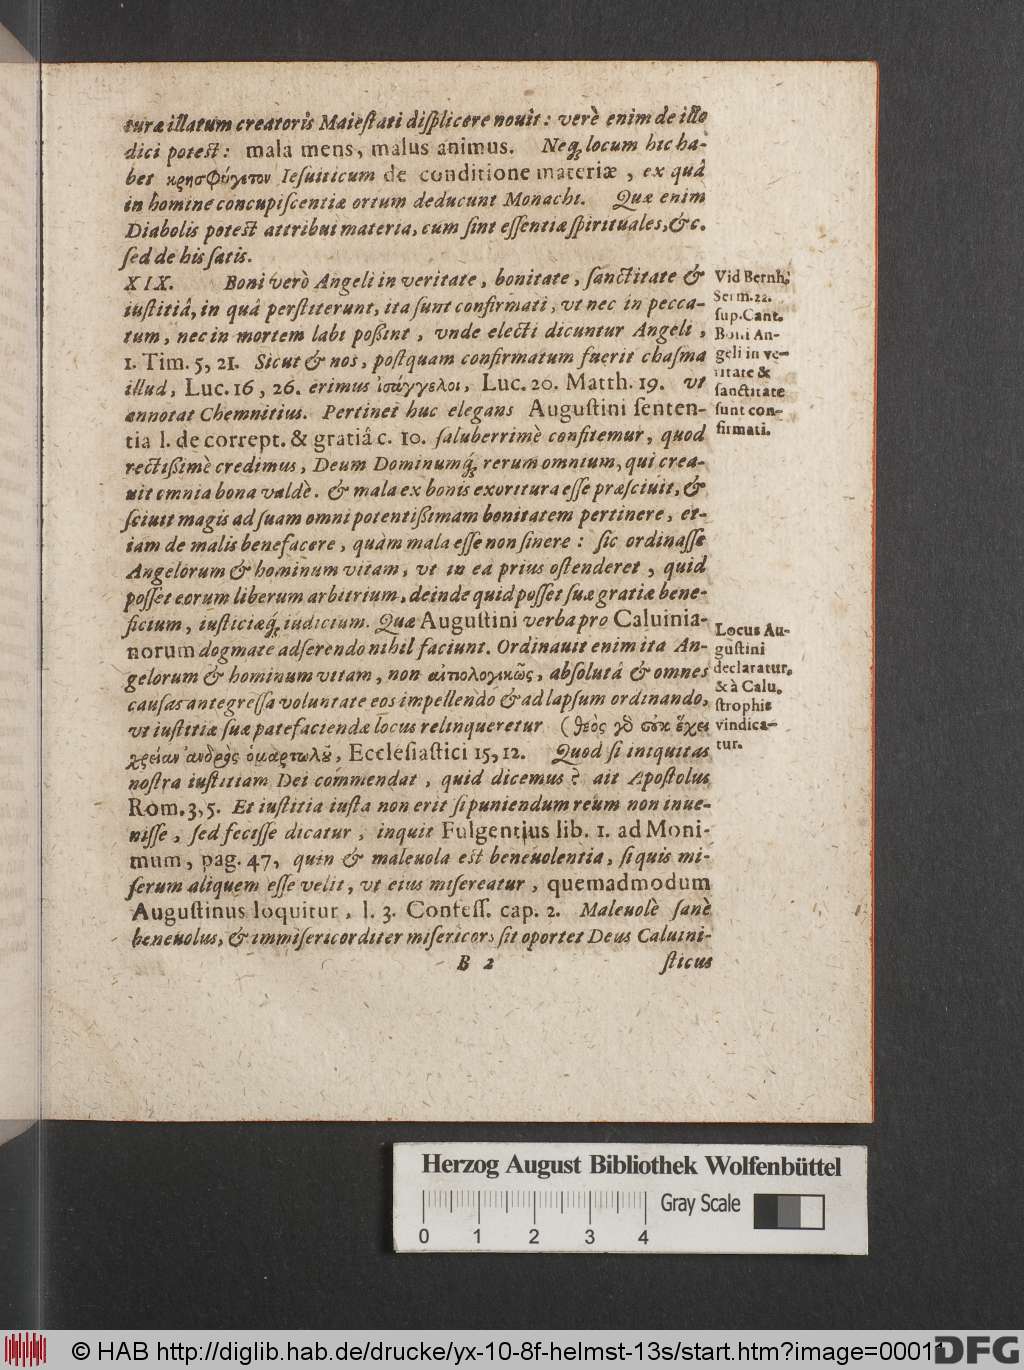 turæ illatum creatoris Maiestati displicere nouit: verè enim de illo
dici potest: mala mens, malus animus. Neq; locum hic ha-
bet κρησφύγετον Iesuiticum de conditione materiæ, ex quâ
in homine concupiscentiæ ortum deducunt Monachi. Quæ enim
Diabolis potest attribui materia, cum sint essentiæ spirituales, &c.
sed de his satis.
XIX. Boni verò Angeli in veritate, bonitate, sanctitate &
iustitiâ, in quâ perstiterunt, ita sunt confirmati, vt nec in pecca-
tum, nec in mortem labi poßint, vnde electi dicuntur Angeli,
1. Tim. 5, 21. Sicut & nos, postquam confirmatum fuerit chasma
illud, Luc. 16, 26. erimus ἰσάγγελοι, Luc. 20. Matth. 19. vt
annotat Chemnitius. Pertinet huc elegans Augustini senten-
tia l. de corrept. & gratiâ c. 10. saluberrimè confitemur, quod
rectißimè credimus, Deum Dominumq́; rerum omnium, qui crea-
uit omnia bona valdè. & mala ex bonis exoritura esse præsciuit, &
sciuit magis ad suam omnipotentißimam bonitatem pertinere, et-
iam de malis benefacere, quàm mala esse non sinere: sic ordinasse
Angelorum & hominum vitam, vt in eâ prius ostenderet, quid
posset eorum liberum arbitrium, deinde quid posset suæ gratiæ bene-
ficium, iusticiæq́; iudicium. Quæ Augustini verba pro Caluinia-
norum dogmate adserendo nihil faciunt. Ordinauit enim ita An-
gelorum & hominum vitam, non αἰτιολογικῶς, absolutâ & omnes
causas antegressa voluntate eos impellendo & ad lapsum ordinando,
vt iustitiæ suæ patefaciendæ locus relinqueretur (θεὸς γὸ σὐκ ἔχει
χρείαν ἀνδρὸς ἁμαρτωλȣ͂, Ecclesiastici 15, 12. Quod si iniquitas
nostra iustitiam Dei commendat, quid dicemus? ait Apostolus
Rom. 3, 5. Et iustitia iusta non erit si puniendum reum non inue-
nisse, sed fecisse dicatur, inquit Fulgentius lib. 1. ad Moni-
mum, pag. 47, quin & maleuola est beneuolentia, si quis mi-
serum aliquem esse velit, vt eius misereatur, quemadmodum
Augustinus loquitur, l. 3. Confess. cap. 2. Maleuolè sanè
beneuolus, & immisericorditer misericors sit oportet Deus Caluini-
B 2 sticus
Vid Bernh.
Serm. 22.
sup. Cant.
Boni An-
geli in ve-
ritate &
sanctitate
sunt con-
firmati.
Locus Au-
gustini
declaratur,
& à Calu.
strophis
vindica-
tur.
Herzog August Bibliothek Wolfenbüttel
Gray Scale
0 1 2 3 4
© HAB http://diglib.hab.de/drucke/yx-10-8f-helmst-13s/start.htm?image=00011
DFG